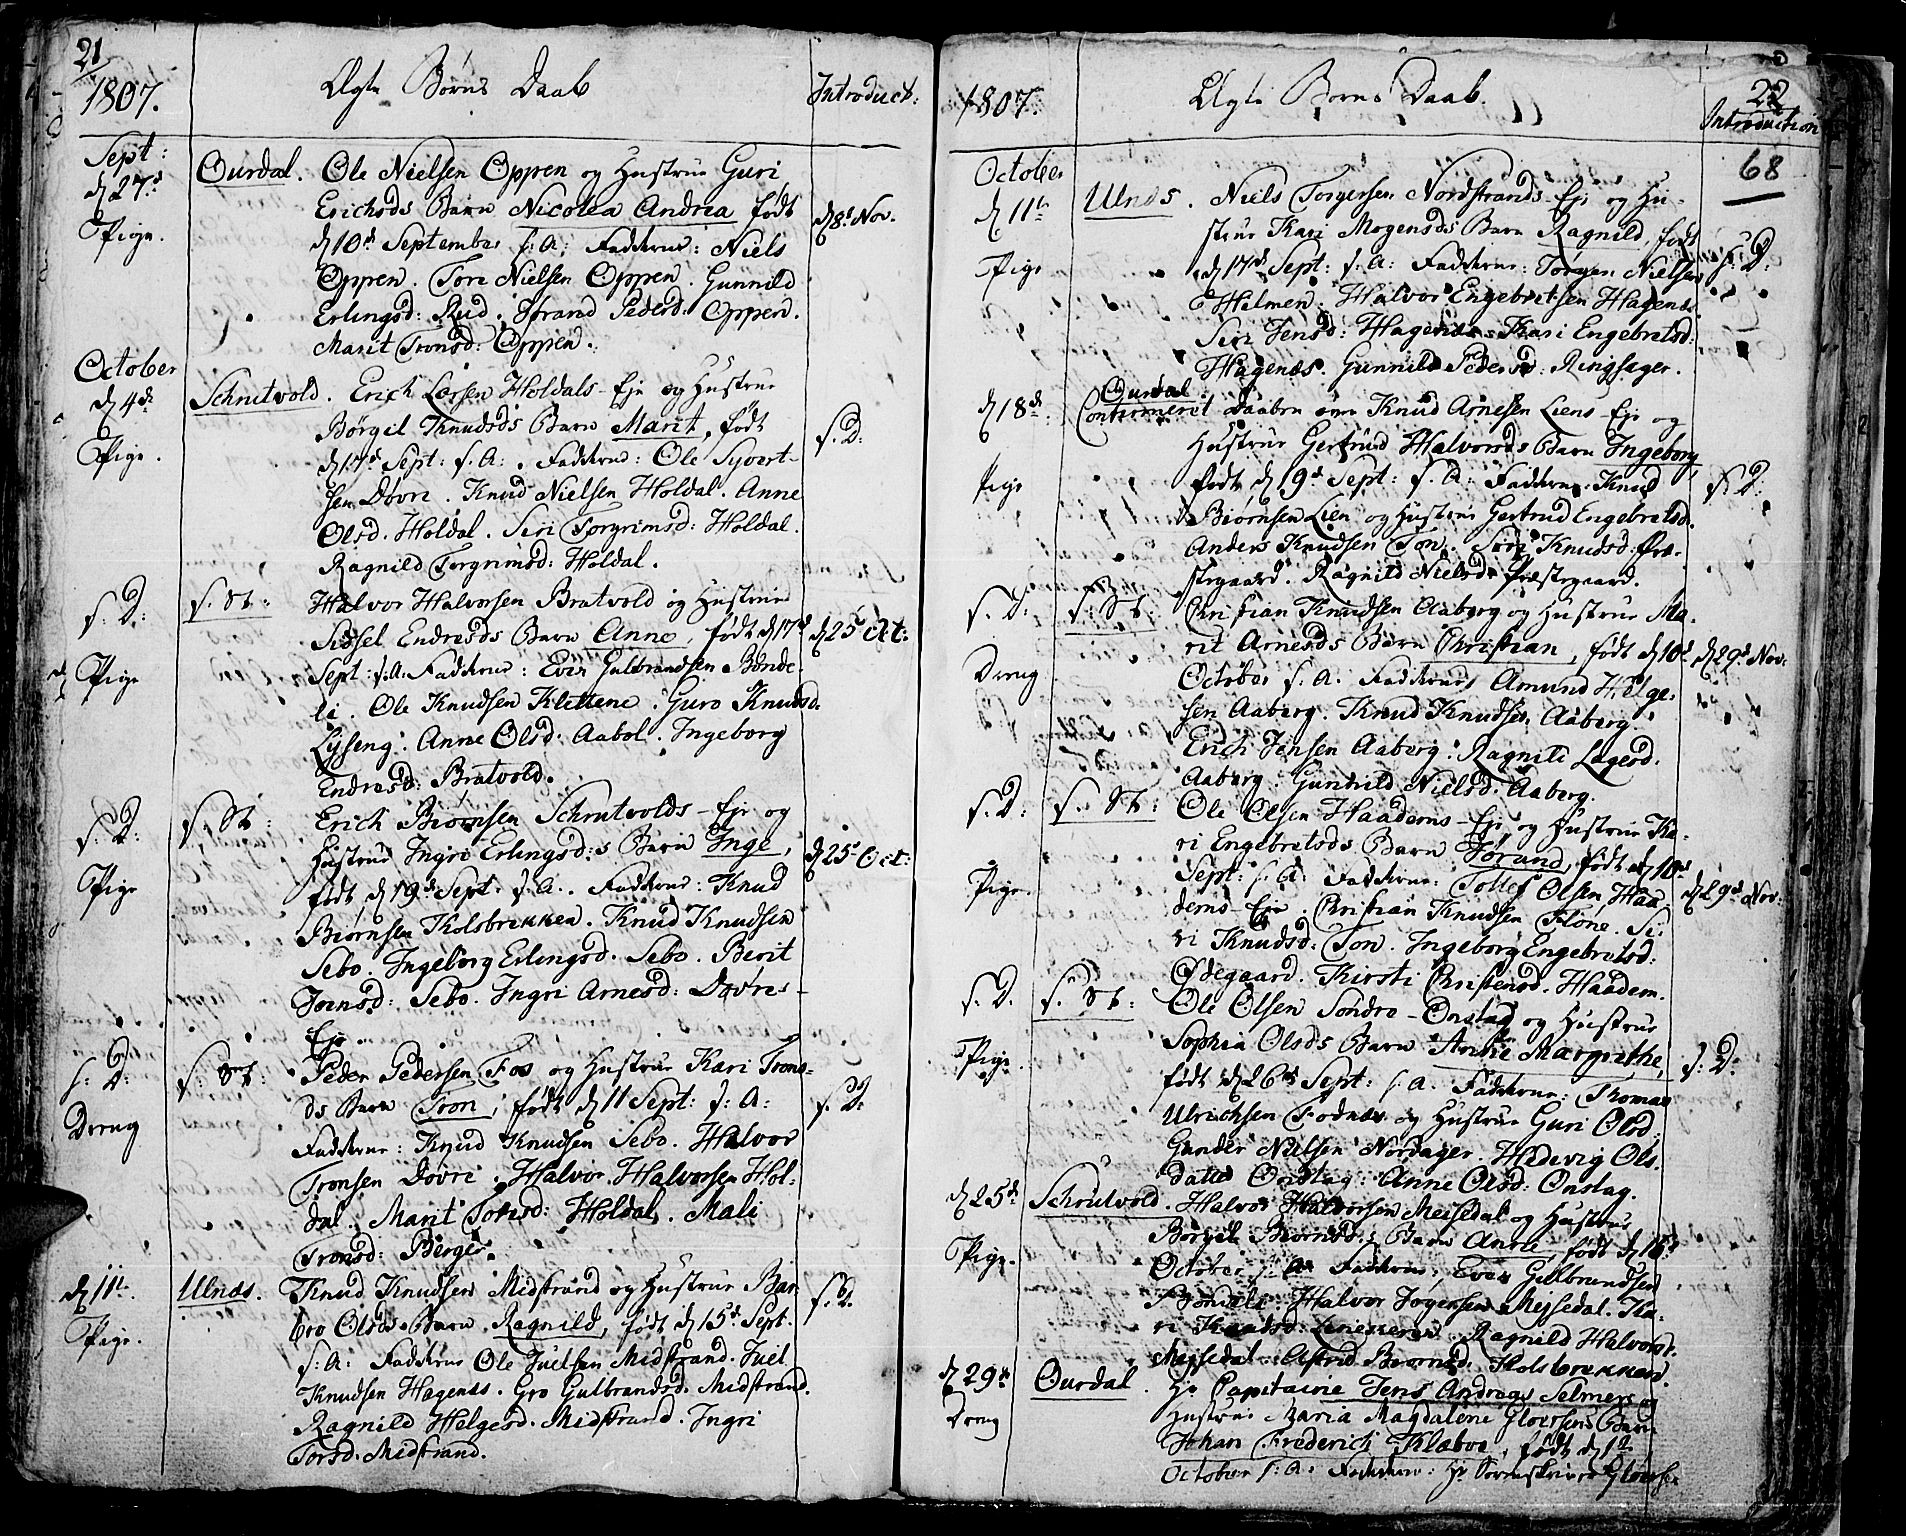 21
1807. Ægte Børns Daab Introduct:
Sept:
d 27d Ourdal. Ole Nielsen Oppen og Hustrue Guri
Pige. Erichsds Barn Nicolea Andrea født d 8d Nov.
d 10d September s. A: Fadderne: Niels
Oppen. Tore Nielsen Oppen. Gunnild
Erlingsd: Rud. Pedersd: Oppen.
Marit Tronsd: Oppen.
October
d 4de Schrutvold. Erich Larsen Holdals-Eje og Hustrue
Pige. Børgil Knudsds Barn Marit, født s. D:
d 17d Sept: s. A: Fadderne: Ole Syvert-
sen Døvre. Knud Nielsen Holdal. Anne
Olsd. Holdal. Siri Torgrimsd: Holdal.
Ragnild Torgrimsd: Holdal.
s. D: s. St: Halvor Halvorsen Bratvold og Hustrue
Sidsel Endresds Barn Anne, født d 17d d 25 Oct:
Pige Sept: s. A: Fadderne: Even Gulbrandsen Bønde-
li. Ole Knudsen Klettene. Guro Knudsd.
Lyseng. Anne Olsd. Aabol. Ingeborg
Endresd: Bratvold.
s. D: s. St: Erich Biørnsen Schrutvolds-Eje og
Hustrue Ingri Erlingsd:s Barn Inge, d 25 Oct:
Pige født d 19d Sept. s. A. Fadderne: Knud
Biørnsen Kolsbrekken. Knud Knudsen
Sebo. Ingeborg Erlingsd. Sebo. Berit
Joensd: Sebo. Ingri Arnesd: Døvres-
Eje.
s. D: s. St: Peder Pedersen Fos og Hustrue Kari Trons-
ds Barn Tron, født d 11 Sept: s. A: s. D:
Dreng Fadderne: Knud Knudsen Sebo. Halvor
Tronsen Døvre. Halvor Halvorsen Hol-
dal. Marit Tomsd: Holdal. Mali
Tronsd: Berger.
d 11te Ulnæs. Knud Knudsen Midstrand og Hustrue Bar-
bro Olsds Barn Ragnild, født d 15d Sept. s. D.
Pige. s. A: Fadderne Ole Juelsen Midstrand. Juel
Knudsen Hagenæs. Gro Gulbrandsd. Midstrand.
Ragnild Helgesd. Midstrand. Ingri
Torsd: Midstrand.
22
1807. Ægte Børns Daab. Introduction
68
October
d 11te Ulnæs. Niels Torgersen Nordstrands-Eje og Hu-
strue Kari Mogensds Barn Ragnild, født
Pige d 17d Sept: s. A: Fadderne: Torger Nielsen s. D:
Hilmen. Halvor Engebretsen Hagenæs.
Siri Jensd: Hagenæs. Kari Engebretsd:
Hagenæs. Gunnild Pedersd: Ringsager.
Ourdal
d 18de Confirmeret Daaben over Knud Arnesen Liens-Eje og
Hustrue Gertrud Halvorsds Barn Ingeborg,
Pige født d 19d Sept: s. A: Fadderne. Knud s. D:
Biørnsen Lien og Hustrue Gertrud Engebretsd.
Anders Knudsen Ton. Siri Knudsd: Præ-
stegaard. Ragnild Nielsd: Præstegaard.
s. D: s. St: Christian Knudsen Aaberg og Hustrue Ma-
rit Arnesds Barn Christian, født d 10d d 29d Nov:
Dreng October s. A. Fadderne Amund Helge-
sen Aaberg. Knud Knudsen Aaberg.
Erich Jensen Aaberg. Ragnild Lagesd.
Aaberg. Gunhild Nielsd. Aaberg.
s. D: s. St: Ole Olsen Haadems-Eje og Hustrue Ka-
ri Engebretsds Barn Jørand, født d 10d
Pige. Sept: s. A. Fadderne: Tollef Olsen Haa- d 29d Nov:
dems-Eje. Christian Knudsen Flone. Si-
ri Knudsd: Ton. Ingeborg Engebretsd:
Ødegaard. Kirsti Christensd. Haadem.
s. D. s. St: Ole Olsen Søndre-Onstad og Hustrue
Sophia Olsds Barn Anne Margrethe,
Pige. født d 26d Sept: s. A. Fadderne: Thomas s. D:
Ulrichsen Fodnæs og Hustrue Guri Olsd.
Gunder Nielsen Nordager. Hedevig Ols-
datter Onstag. Anne Olsd: Onstag.
d 25d: Schrutvold. Halvor Halvorsen Mejsedal og Hustrue
Børgil Biørnsd:s Barn Anne, født d 16d
Pige. October s. A. Fadderne: Even Gulbrandsen
Bøndeli. Halvor Jørgensen Mejsedal. Ka-
ri Knudsd: Ragnild Halvorsd.
Mejsedal. Astrid Biørnsd. Kolsbrekken.
d 29d Ourdal. Hr Capitaine Jens Andreas Selmers og
Dreng Hustrue Maria Magdalene Gloersens Barn
Johan Frederich Klæboe, født d 1te
October s: A: Fadderne: Hr Sorenskriver Gloersen